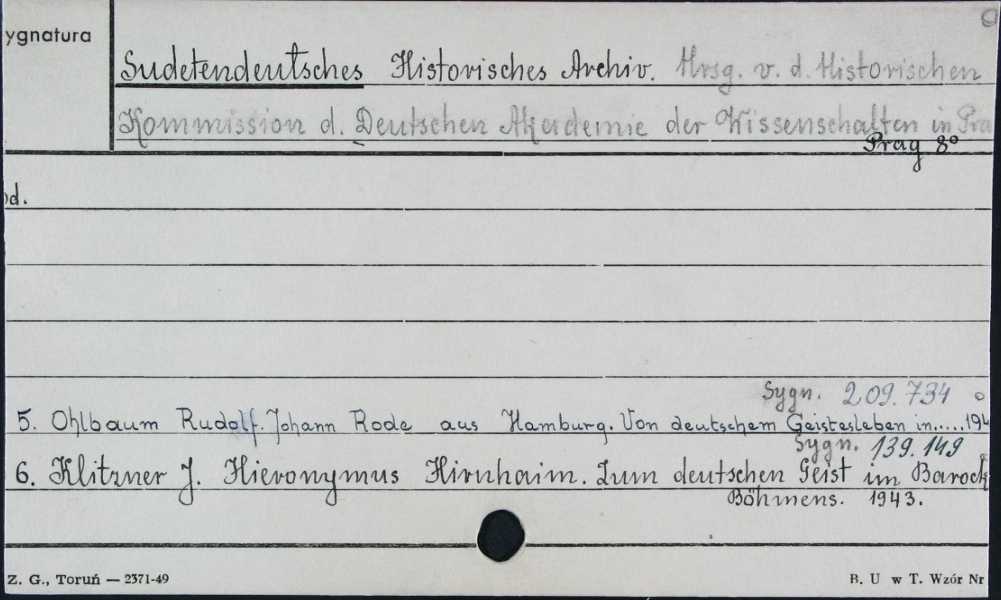 ygnatura
Sudetendeutsches Historisches Archiv. Hrsg. v. d. Historischen
Kommission d. Deutschen Akademie der Wissenschaften in Pra
Prag 8°
od.
Sygn. 209.734
5. Ohlbaum Rudolf. Johann Rode aus Hamburg. Von deutschem Geistesleben in.....194
Sygn. 139.149
6. Klitzner J. Hieronymus Hirnhaim. Zum deutschen Geist im Barock
Böhmens. 1943.
Z. G., Toruń — 2371-49
B. U w T. Wzór Nr